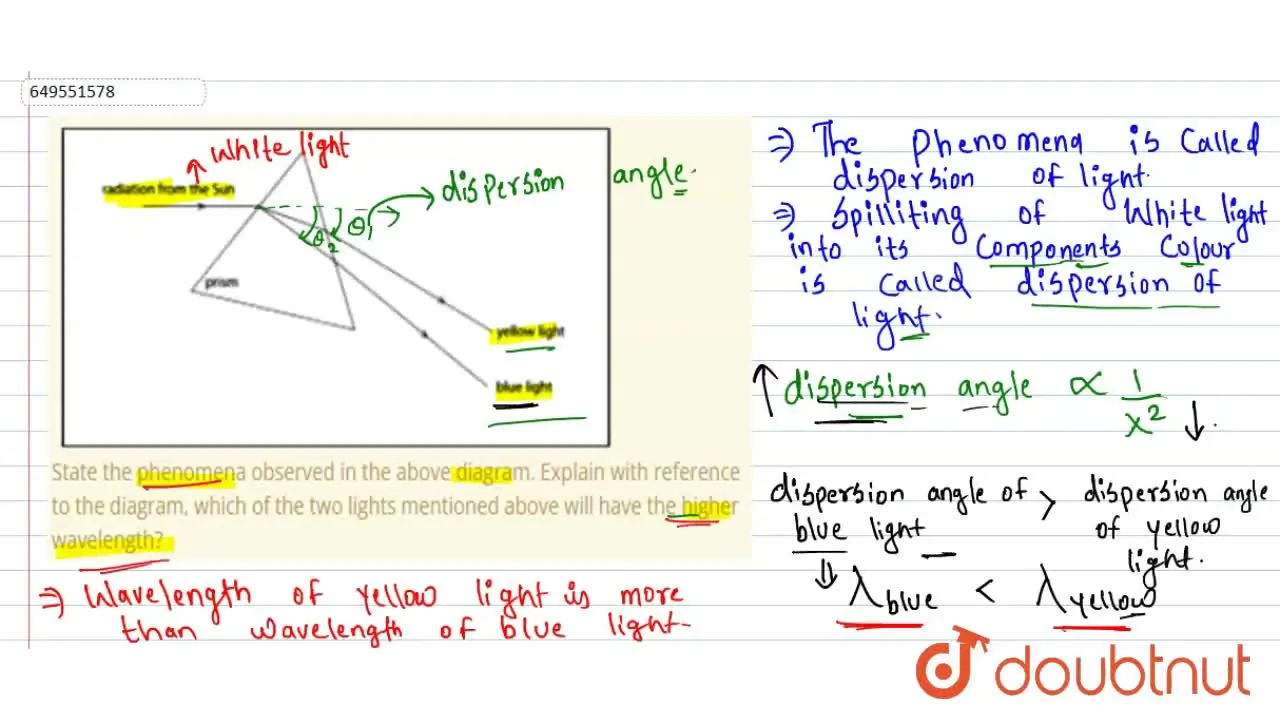 649551578
White light
radiation from the Sun
dispersion angle.
θ1
θ2
prism
yellow light
blue light
State the phenomena observed in the above diagram. Explain with reference
to the diagram, which of the two lights mentioned above will have the higher
wavelength?
⇒ Wavelength of yellow light is more
than wavelength of blue light
⇒ The Phenomena is Called
dispersion of light.
⇒ Spilliting of White light
into its Components Colour
is Called dispersion of
light.
↑ dispersion angle ∝ 1/x² ↓.
dispersion angle of > dispersion angle
blue light of yellow
light.
⇓ λblue < λyellow
doubtnut